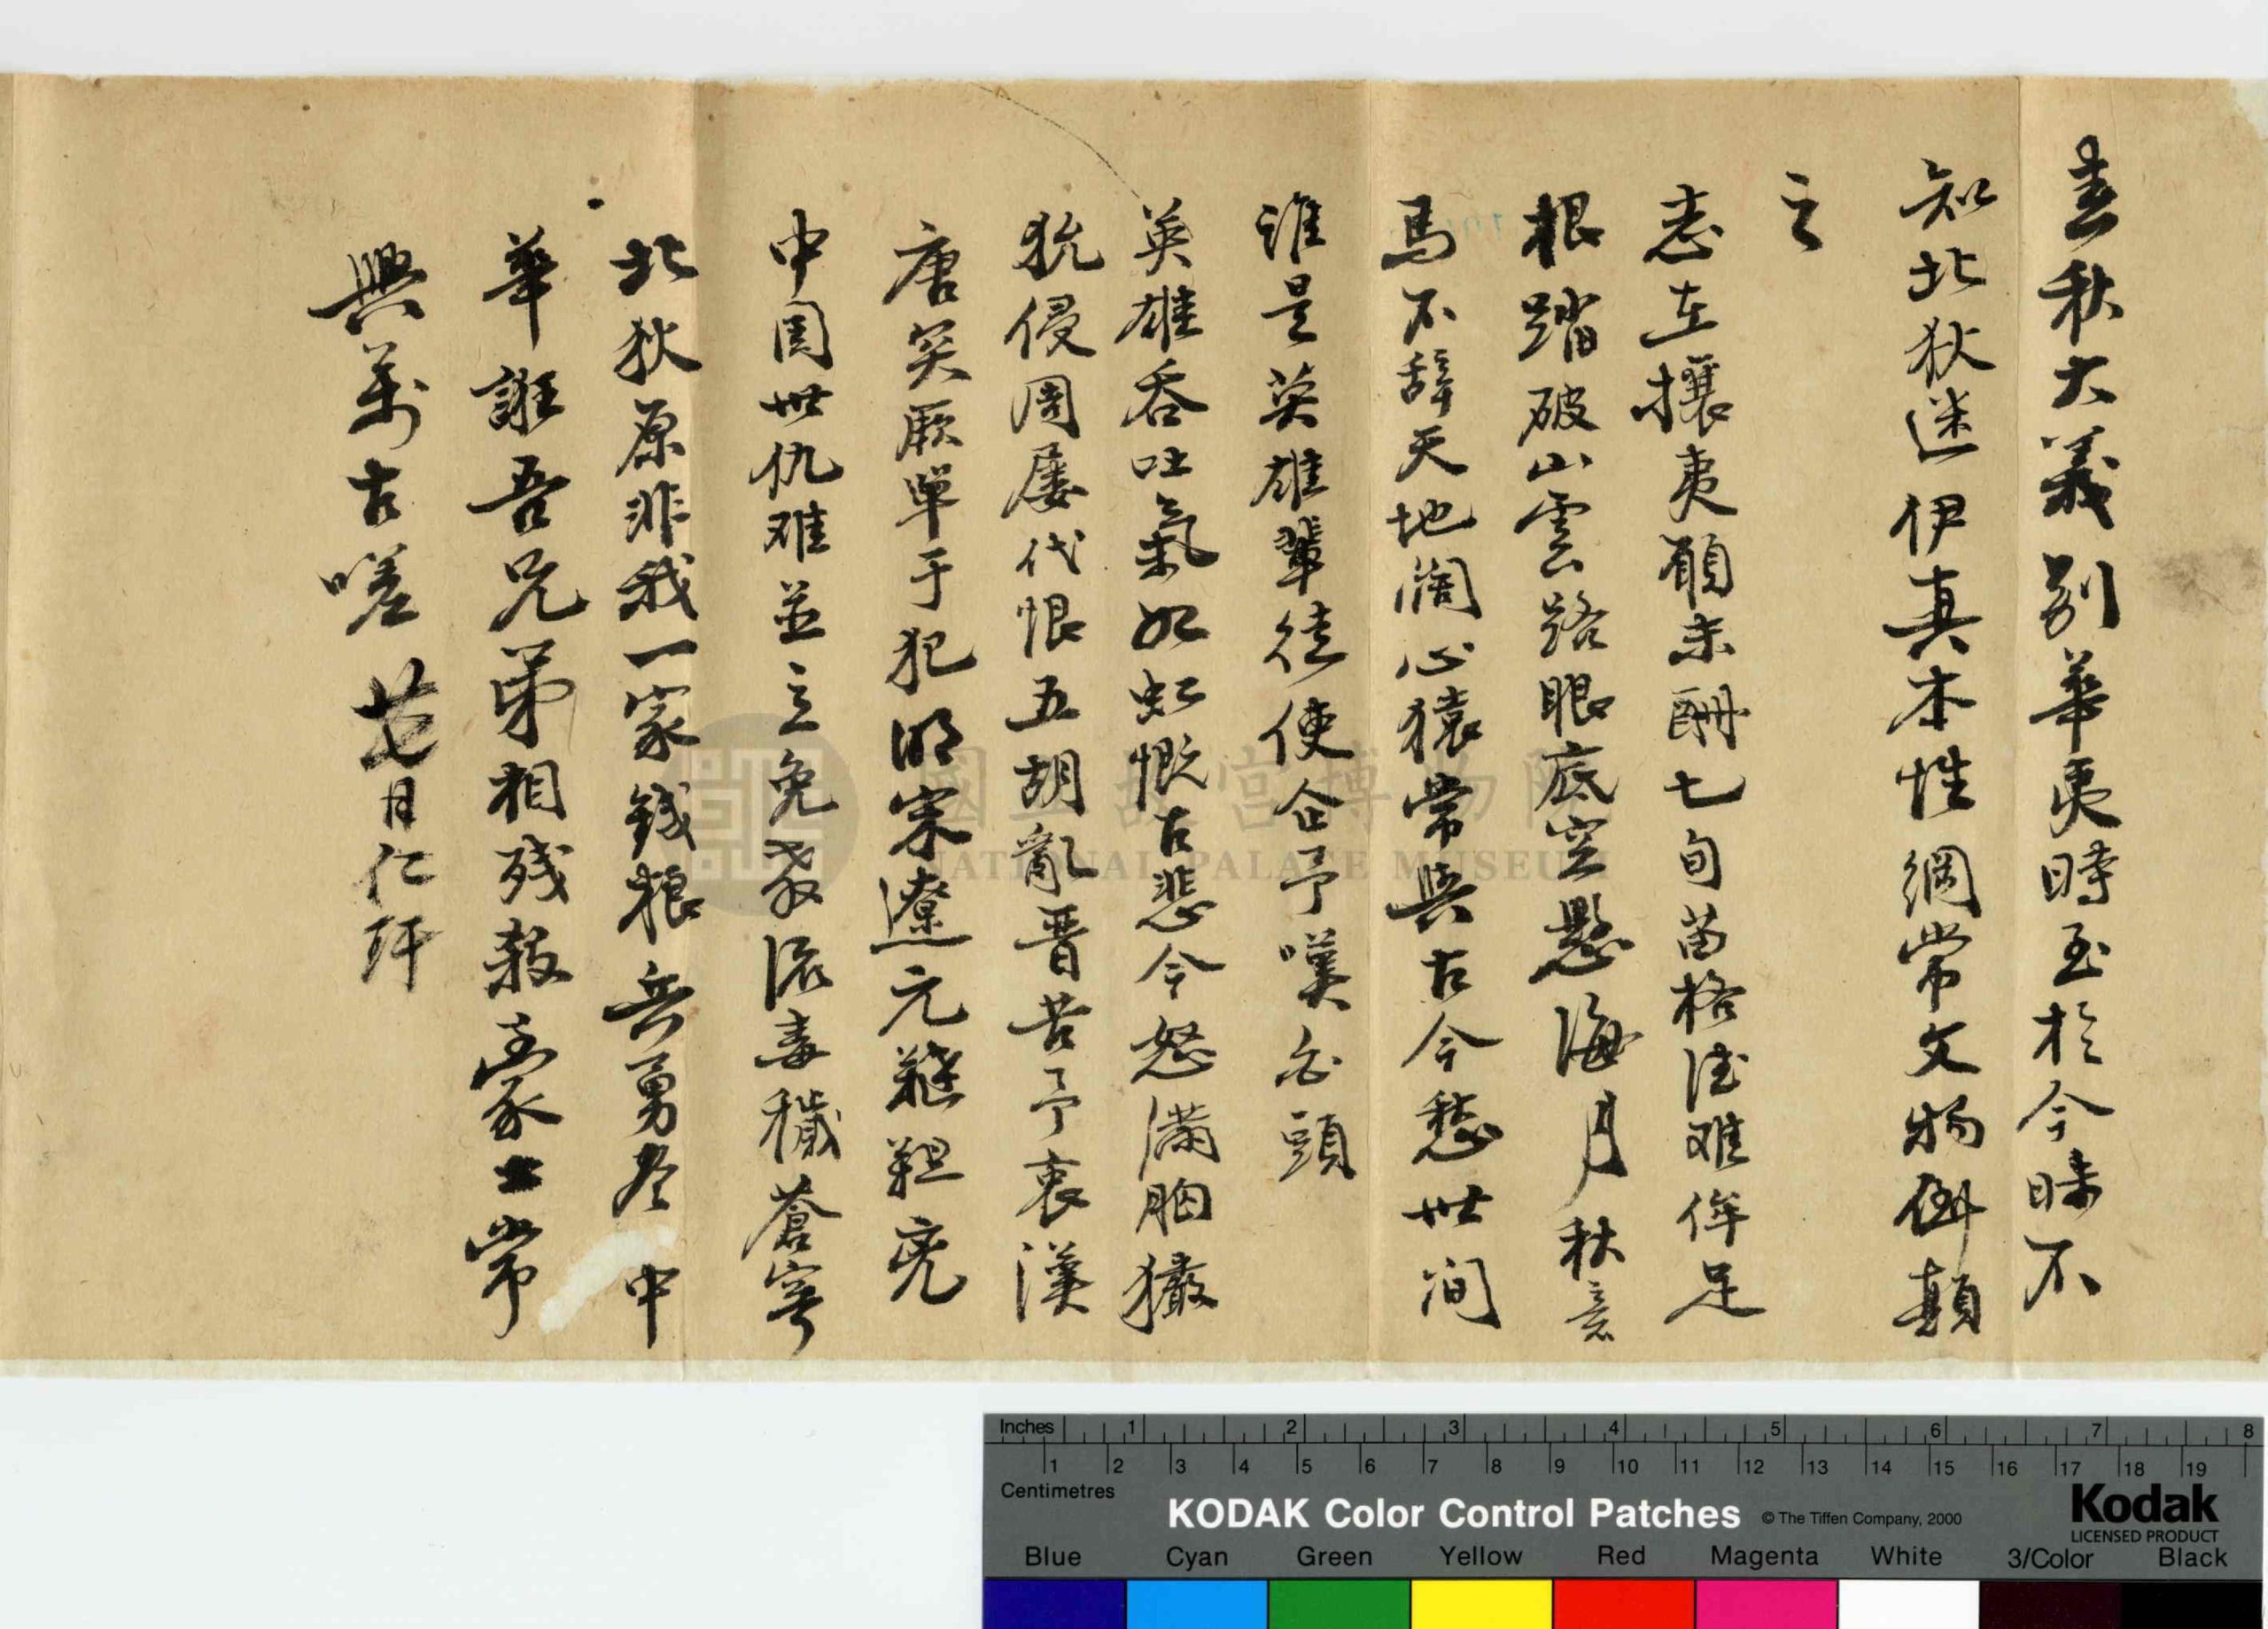 春秋大義别華夷時至於今時不
知北狄迷伊真本性綱常文物倒顛
之
志在攘夷願未酬七旬苗格德难侔足
根踏破山雲路眼底空懸海月秋意
馬不辞天地闊心猿常與古今愁世间
谁是英雄輩徒使企予嘆白頭
英雄吞吐氣如虹慨古悲今怒滿胸玁
狁侵周屡代恨五胡亂晋苦予衷漢
唐突厥單于犯明宋遼元韃靼兇
中國世仇难並立免教流毒穢蒼穹
北狄原非我一家钱粮兵勇尽中
華誆吾兄弟相残殺豪士常
興萬古嗟 廿七日仁玕
國立故宫博物院
NATIONAL PALACE MUSEUM
Inches 1 2 3 4 5 6 7 8
1 2 3 4 5 6 7 8 9 10 11 12 13 14 15 16 17 18 19
Centimetres
KODAK Color Control Patches © The Tiffen Company, 2000
Kodak
LICENSED PRODUCT
Blue Cyan Green Yellow Red Magenta White 3/Color Black